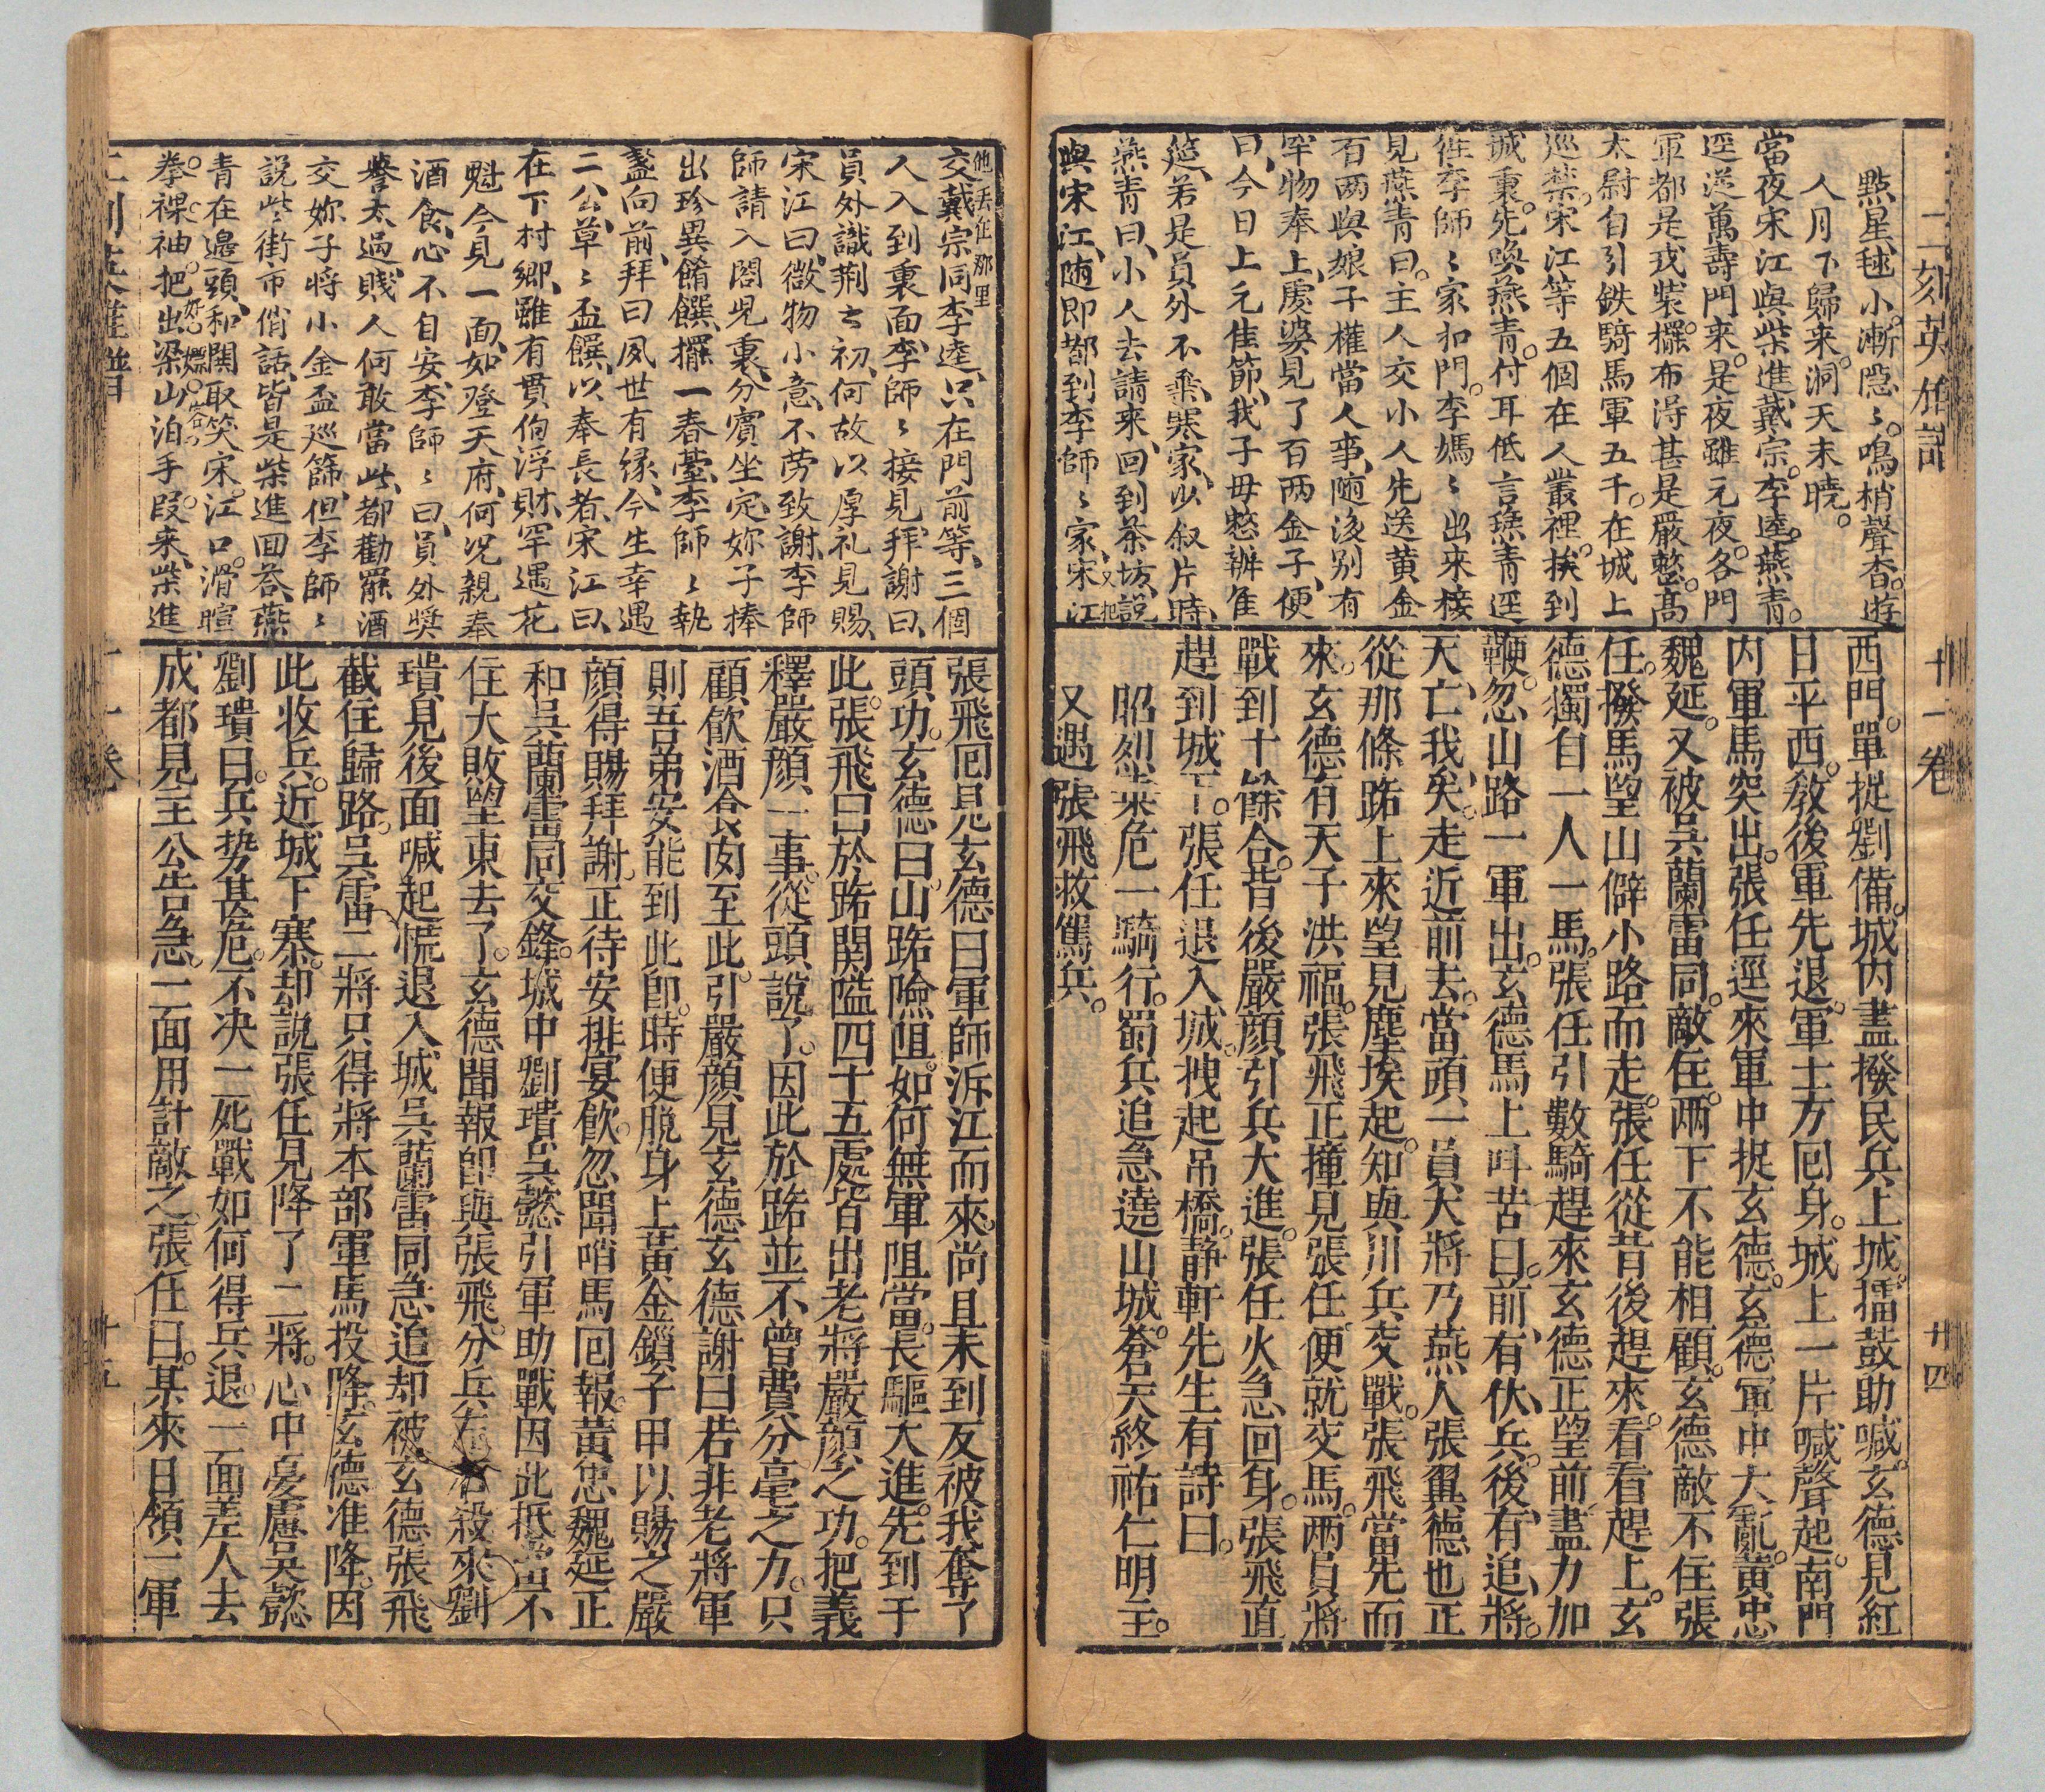 二刻英雄譜
十一卷
廿四
點星毬小漸隱〻鳴梢聲杳遊
人月下歸来洞天未曉
當夜宋江與柴進戴宗李逵燕青
逕送萬壽門来是夜雖元夜各門
軍都是戎裝擺布淂甚是嚴整高
太尉自引鉄騎馬軍五千在城上
巡禁宋江等五個在人叢裡挨到
城東先喚燕青付耳低言燕青逕
徃李師〻家扣門李媽〻出来接
見燕青曰主人交小人先送黄金
百两與娘子權當人事随後别有
罕物奉上虔婆見了百两金子便
曰今日上元佳節我子母整辦筵
筵若是員外不棄寒家少叙片時
燕青曰小人去請来回到茶坊說
與宋江随即都到李師〻家宋江
又把
西門單捉劉備城內盡撥民兵上城擂鼓助喊玄德見紅
日平西教後軍先退軍士方回身城上一片喊聲起南門
內軍馬突出張任逕來軍中捉玄德玄德軍中大亂黃忠
魏延又被吳蘭雷同敵住兩下不能相顧玄德敵不住張
任撥馬望山僻小路而走張任從背後趕來看看趕上玄
德獨自一人一馬張任引數騎趕來玄德正望前盡力加
鞭忽山路一軍出玄德馬上呌苦曰前有伏兵後有追將
天亡我矣走近前去當頭一員大將乃燕人張翼德也正
從那條路上來望見塵埃起知與川兵交戰張飛當先而
來玄德有天子洪福張飛正撞見張任便就交馬兩員將
戰到十餘合背後嚴顏引兵大進張任火急回身張飛直
趕到城下張任退入城拽起吊橋靜軒先生有詩曰
昭烈業危一騎行蜀兵追急遶山城蒼天終祐仁明主
又遇張飛救駕兵
他丢在那里
交戴宗同李逵只在門前等三個
人入到裏面李師〻接見拜謝曰
員外識荆之初何故以厚礼見賜
宋江曰微物小意不勞致謝李師
師請入閣児裏分賓坐定妳子捧
出珍異餚饌擺一春臺李師〻執
盞向前拜曰夙世有緣今生幸遇
二公草〻盃饌以奉長者宋江曰
在下村郷雖有貫伯浮財罕遇花
魁今見一面如登天府何况親奉
酒食心不自安李師〻曰員外獎
譽太過賤人何敢當此都勸罷酒
交妳子將小金盃巡篩但李師〻
說些〻街市俏話皆是柴進回荅燕
青在邉頭和閧取笑宋江口滑暄
拳裸袖把出梁山泊手段来柴進
張飛回見玄德曰軍師泝江而來尚且未到反被我奪了
頭功玄德曰山路險阻如何無軍阻當長驅大進先到于
此張飛曰於路関隘四十五處皆出老將嚴顏之功把義
釋嚴顏一事從頭說了因此於路並不曾費分毫之力只
顧飮酒食肉至此引嚴顏見玄德玄德謝曰若非老將軍
則吾弟安能到此卽時便脫身上黃金鎖子甲以賜之嚴
顏得賜拜謝正待安排宴飮忽聞哨馬回報黃忠魏延正
和吳蘭雷同交鋒城中劉璝吳懿引軍助戰因此抵當不
住大敗望東去了玄德聞報卽與張飛分兵左右殺來劉
璝見後面喊起慌退入城吳蘭雷同急追却被玄德張飛
截住歸路吳雷二將只得將本部軍馬投降玄德准降因
此收兵近城下寨却說張任見降了二將心中憂慮吳懿
劉璝曰兵势甚危不决一死戰如何得兵退一面差人去
成都見主公告急一面用計敵之張任曰某來日領一軍
二刻英雄譜
十一卷
廿五